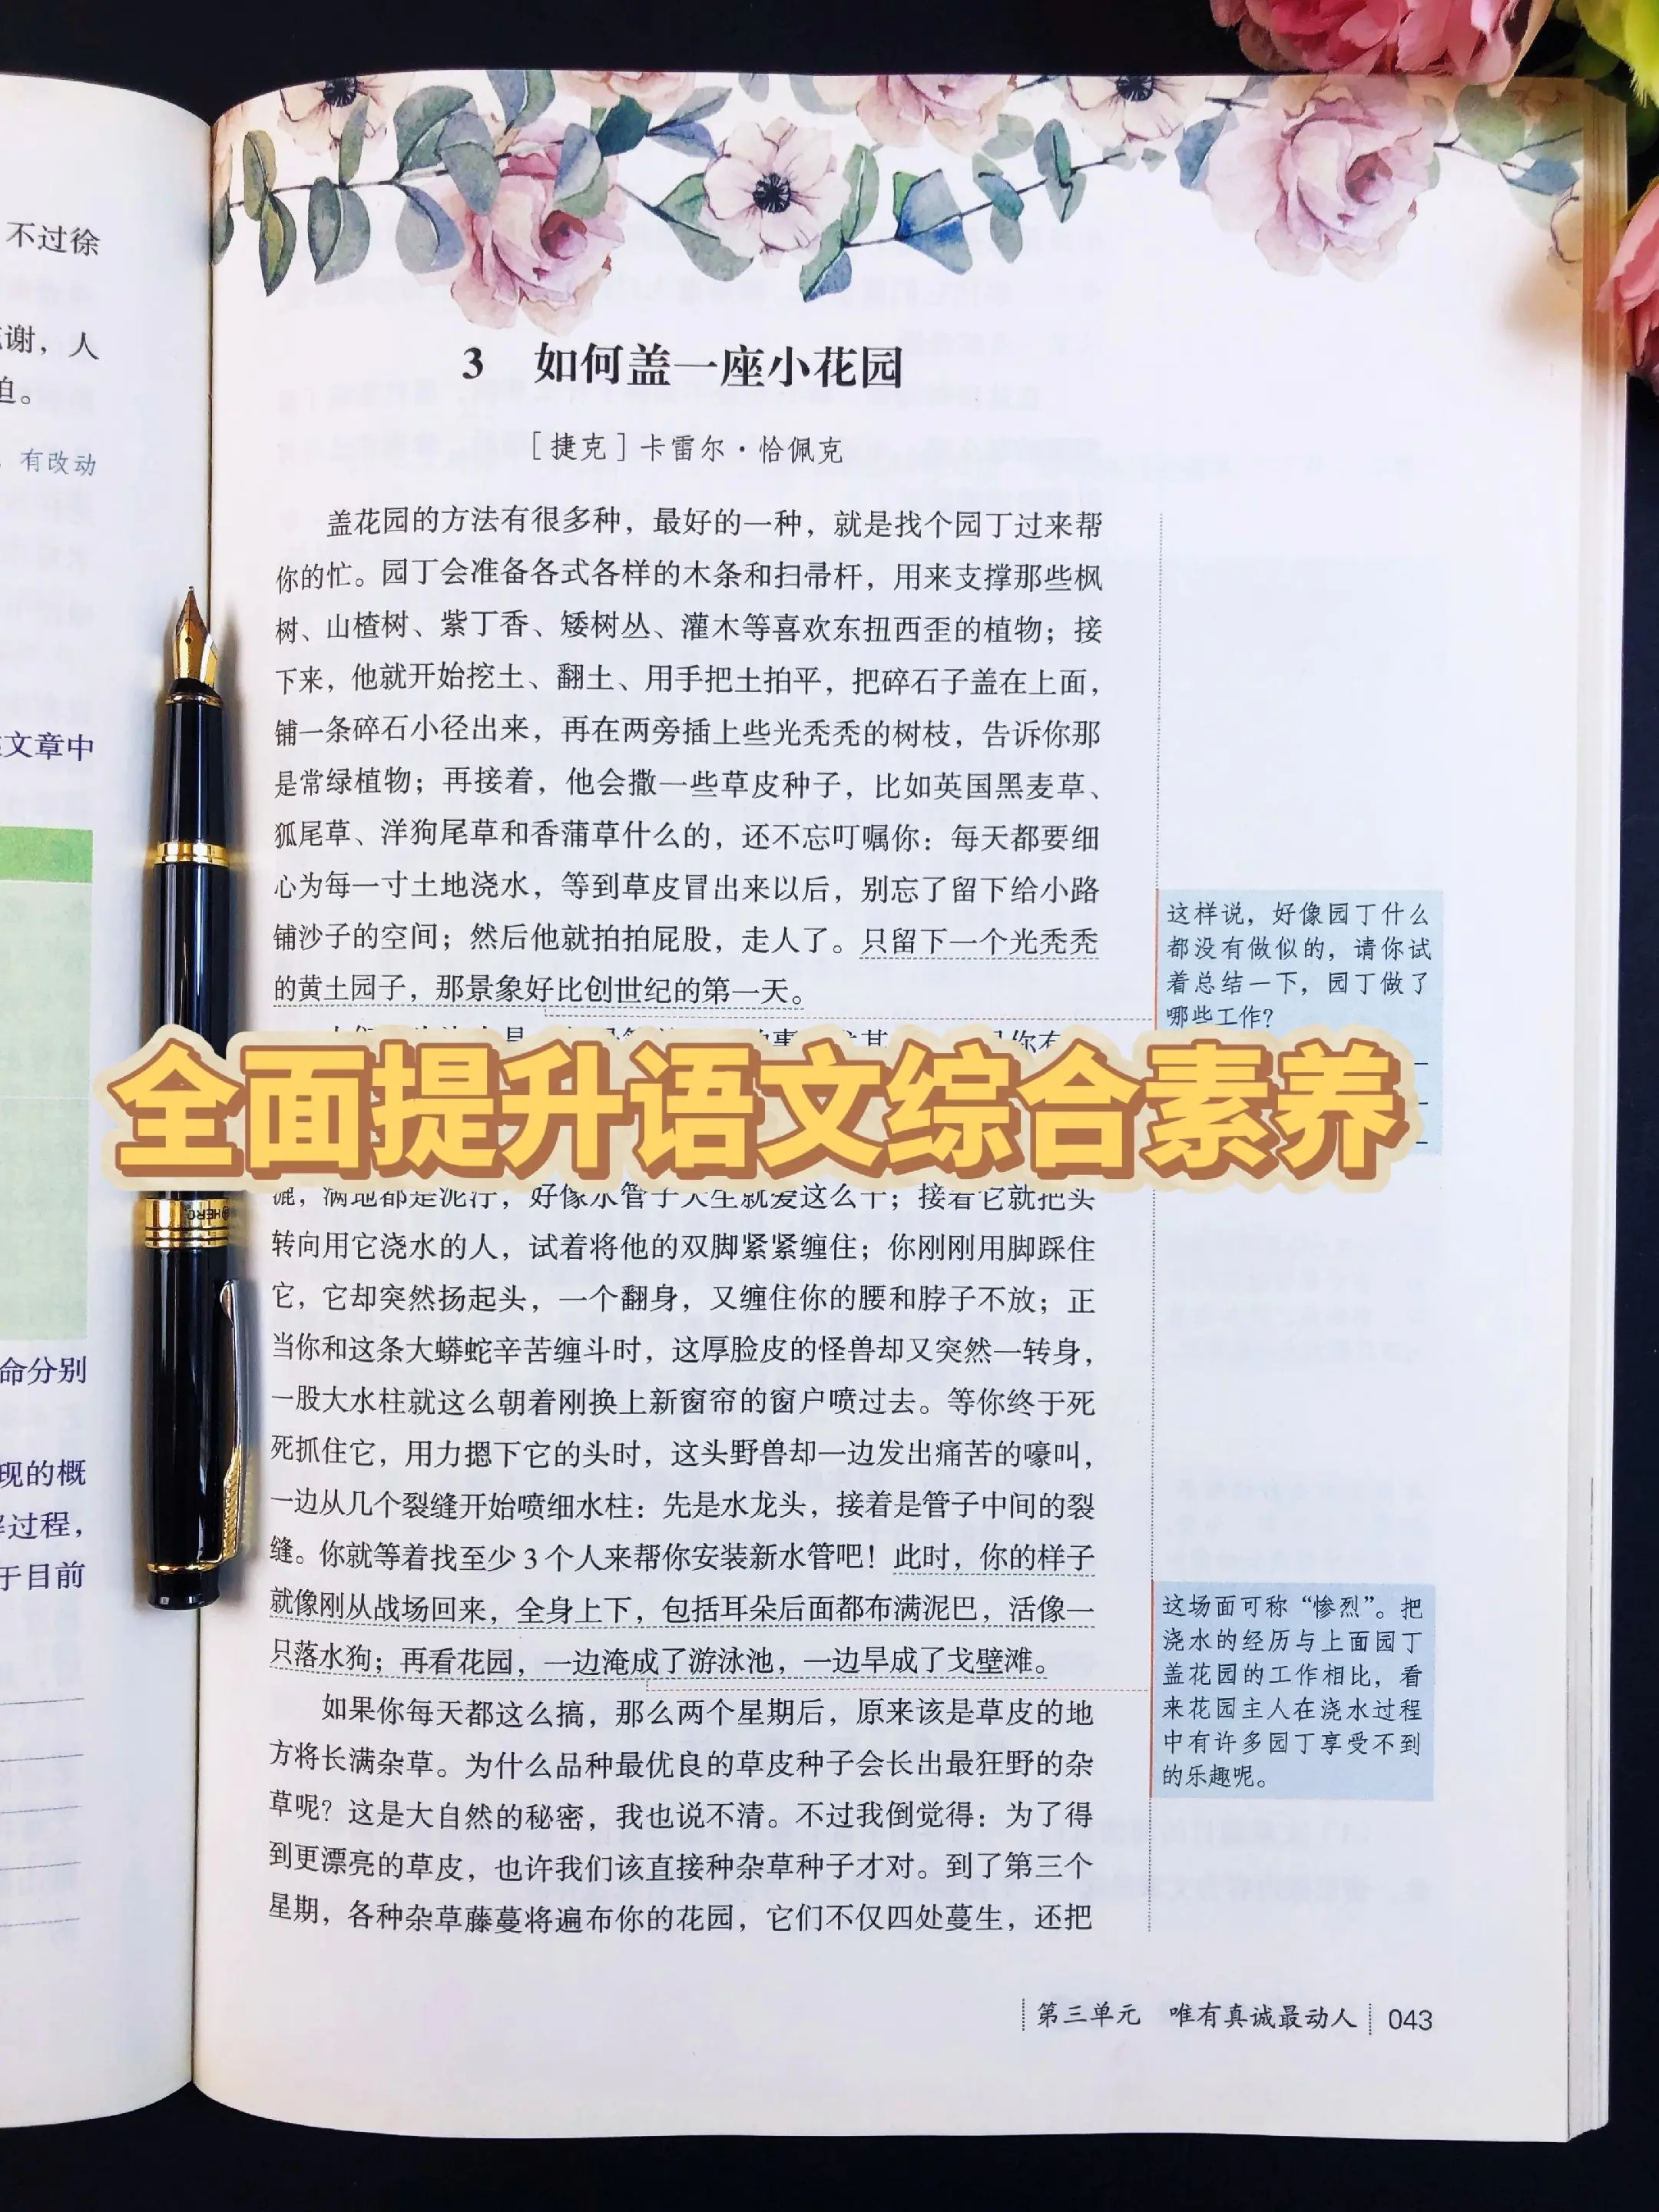 不过徐
谢，人
迫。
有改动
文章中
命分别
现的概
过程，
于目前
3 如何盖一座小花园
［捷克］卡雷尔·恰佩克
盖花园的方法有很多种，最好的一种，就是找个园丁过来帮
你的忙。园丁会准备各式各样的木条和扫帚杆，用来支撑那些枫
树、山楂树、紫丁香、矮树丛、灌木等喜欢东扭西歪的植物；接
下来，他就开始挖土、翻土、用手把土拍平，把碎石子盖在上面，
铺一条碎石小径出来，再在两旁插上些光秃秃的树枝，告诉你那
是常绿植物；再接着，他会撒一些草皮种子，比如英国黑麦草、
狐尾草、洋狗尾草和香蒲草什么的，还不忘叮嘱你：每天都要细
心为每一寸土地浇水，等到草皮冒出来以后，别忘了留下给小路
铺沙子的空间；然后他就拍拍屁股，走人了。只留下一个光秃秃
的黄土园子，那景象好比创世纪的第一天。
这样说，好像园丁什么
都没有做似的，请你试
着总结一下，园丁做了
哪些工作？
全面提升语文综合素养
漉，满地都是泥泞，好像水管子天生就爱这么干；接着它就把头
转向用它浇水的人，试着将他的双脚紧紧缠住；你刚刚用脚踩住
它，它却突然扬起头，一个翻身，又缠住你的腰和脖子不放；正
当你和这条大蟒蛇辛苦缠斗时，这厚脸皮的怪兽却又突然一转身，
一股大水柱就这么朝着刚换上新窗帘的窗户喷过去。等你终于死
死抓住它，用力摁下它的头时，这头野兽却一边发出痛苦的嚎叫，
一边从几个裂缝开始喷细水柱：先是水龙头，接着是管子中间的裂
缝。你就等着找至少3个人来帮你安装新水管吧！此时，你的样子
就像刚从战场回来，全身上下，包括耳朵后面都布满泥巴，活像一
只落水狗；再看花园，一边淹成了游泳池，一边旱成了戈壁滩。
这场面可称“惨烈”。把
浇水的经历与上面园丁
盖花园的工作相比，看
来花园主人在浇水过程
中有许多园丁享受不到
的乐趣呢。
如果你每天都这么搞，那么两个星期后，原来该是草皮的地
方将长满杂草。为什么品种最优良的草皮种子会长出最狂野的杂
草呢？这是大自然的秘密，我也说不清。不过我倒觉得：为了得
到更漂亮的草皮，也许我们该直接种杂草种子才对。到了第三个
星期，各种杂草藤蔓将遍布你的花园，它们不仅四处蔓生，还把
第三单元 唯有真诚最动人 043